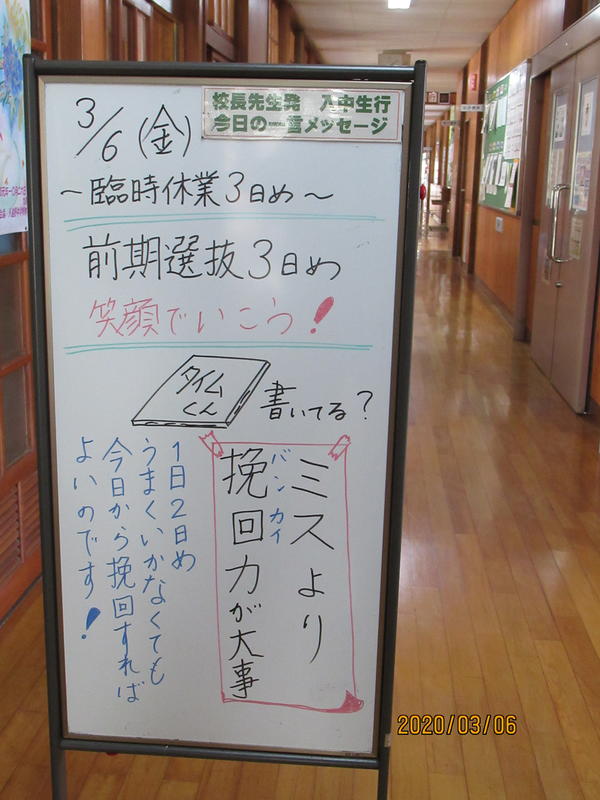 校長先生発　入中生行
今日の一言メッセージ
3/6(金)
～臨時休業3日め～
前期選抜3日め
笑顔でいこう!
タイム
くん
書いてる?
ミスより
挽回力が大事
バンカイ
1日2日め
うまくいかなくても
今日から挽回すれば
よいのです!
2020/03/06